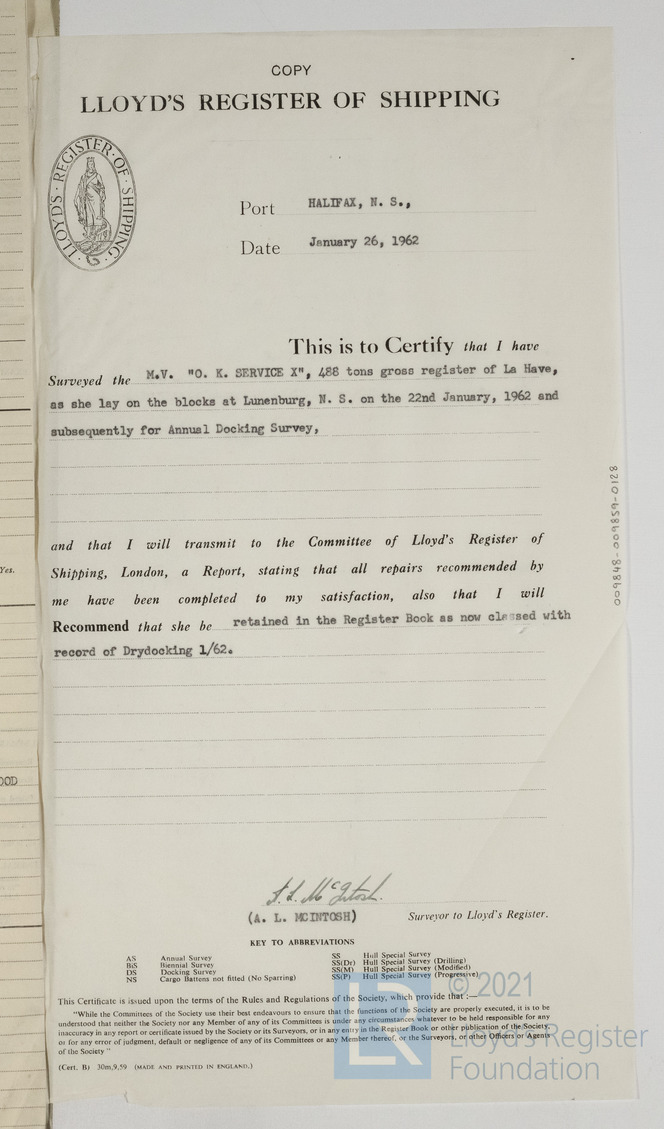 COPY
LLOYD'S REGISTER OF SHIPPING
LLOYD'S · REGISTER · OF · SHIPPING
Port HALIFAX, N. S.,
Date January 26, 1962
This is to Certify that I have
Surveyed the M.V. "O. K. SERVICE X", 488 tons gross register of La Have,
as she lay on the blocks at Lunenburg, N. S. on the 22nd January, 1962 and
subsequently for Annual Docking Survey,
and that I will transmit to the Committee of Lloyd's Register of
Shipping, London, a Report, stating that all repairs recommended by
me have been completed to my satisfaction, also that I will
Recommend that she be retained in the Register Book as now classed with
record of Drydocking 1/62.
A. L. McIntosh.
(A. L. MCINTOSH) Surveyor to Lloyd's Register.
KEY TO ABBREVIATIONS
AS Annual Survey
BiS Biennial Survey
DS Docking Survey
NS Cargo Battens not fitted (No Sparring)
SS Hull Special Survey
SS(Dr) Hull Special Survey (Drilling)
SS(M) Hull Special Survey (Modified)
SS(P) Hull Special Survey (Progressive)
This Certificate is issued upon the terms of the Rules and Regulations of the Society, which provide that :—
"While the Committees of the Society use their best endeavours to ensure that the functions of the Society are properly executed, it is to be
understood that neither the Society nor any Member of any of its Committees is under any circumstances whatever to be held responsible for any
inaccuracy in any report or certificate issued by the Society or its Surveyors, or in any entry in the Register Book or other publication of the Society,
or for any error of judgment, default or negligence of any of its Committees or any Member thereof, or the Surveyors, or other Officers or Agents
of the Society "
(Cert. B) 30m,9,59 (MADE AND PRINTED IN ENGLAND.)
009848-009859-0128
Yes.
OOD
LR
© 2021
Lloyd's Register
Foundation